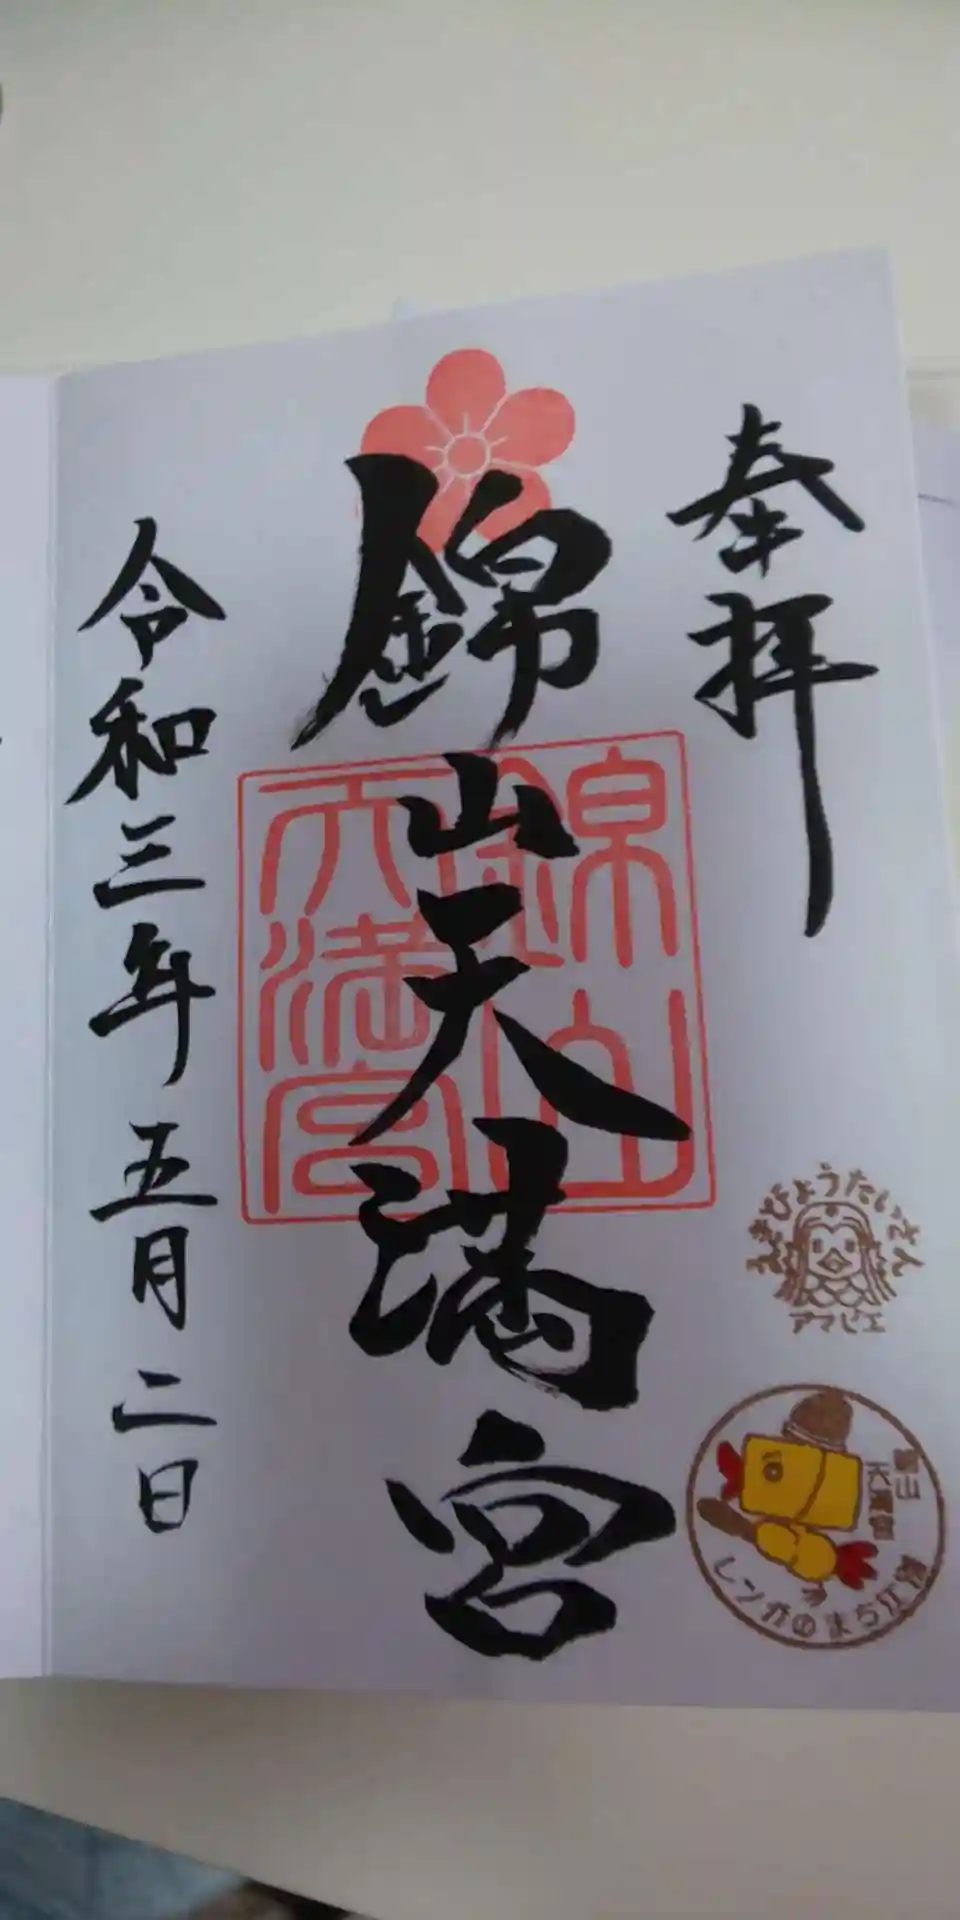 奉拝
錦山天満宮
錦山
天満宮
令和三年五月二日
えきびょうたいさん
アマビエ
錦山
天満宮
レンガのまち江別